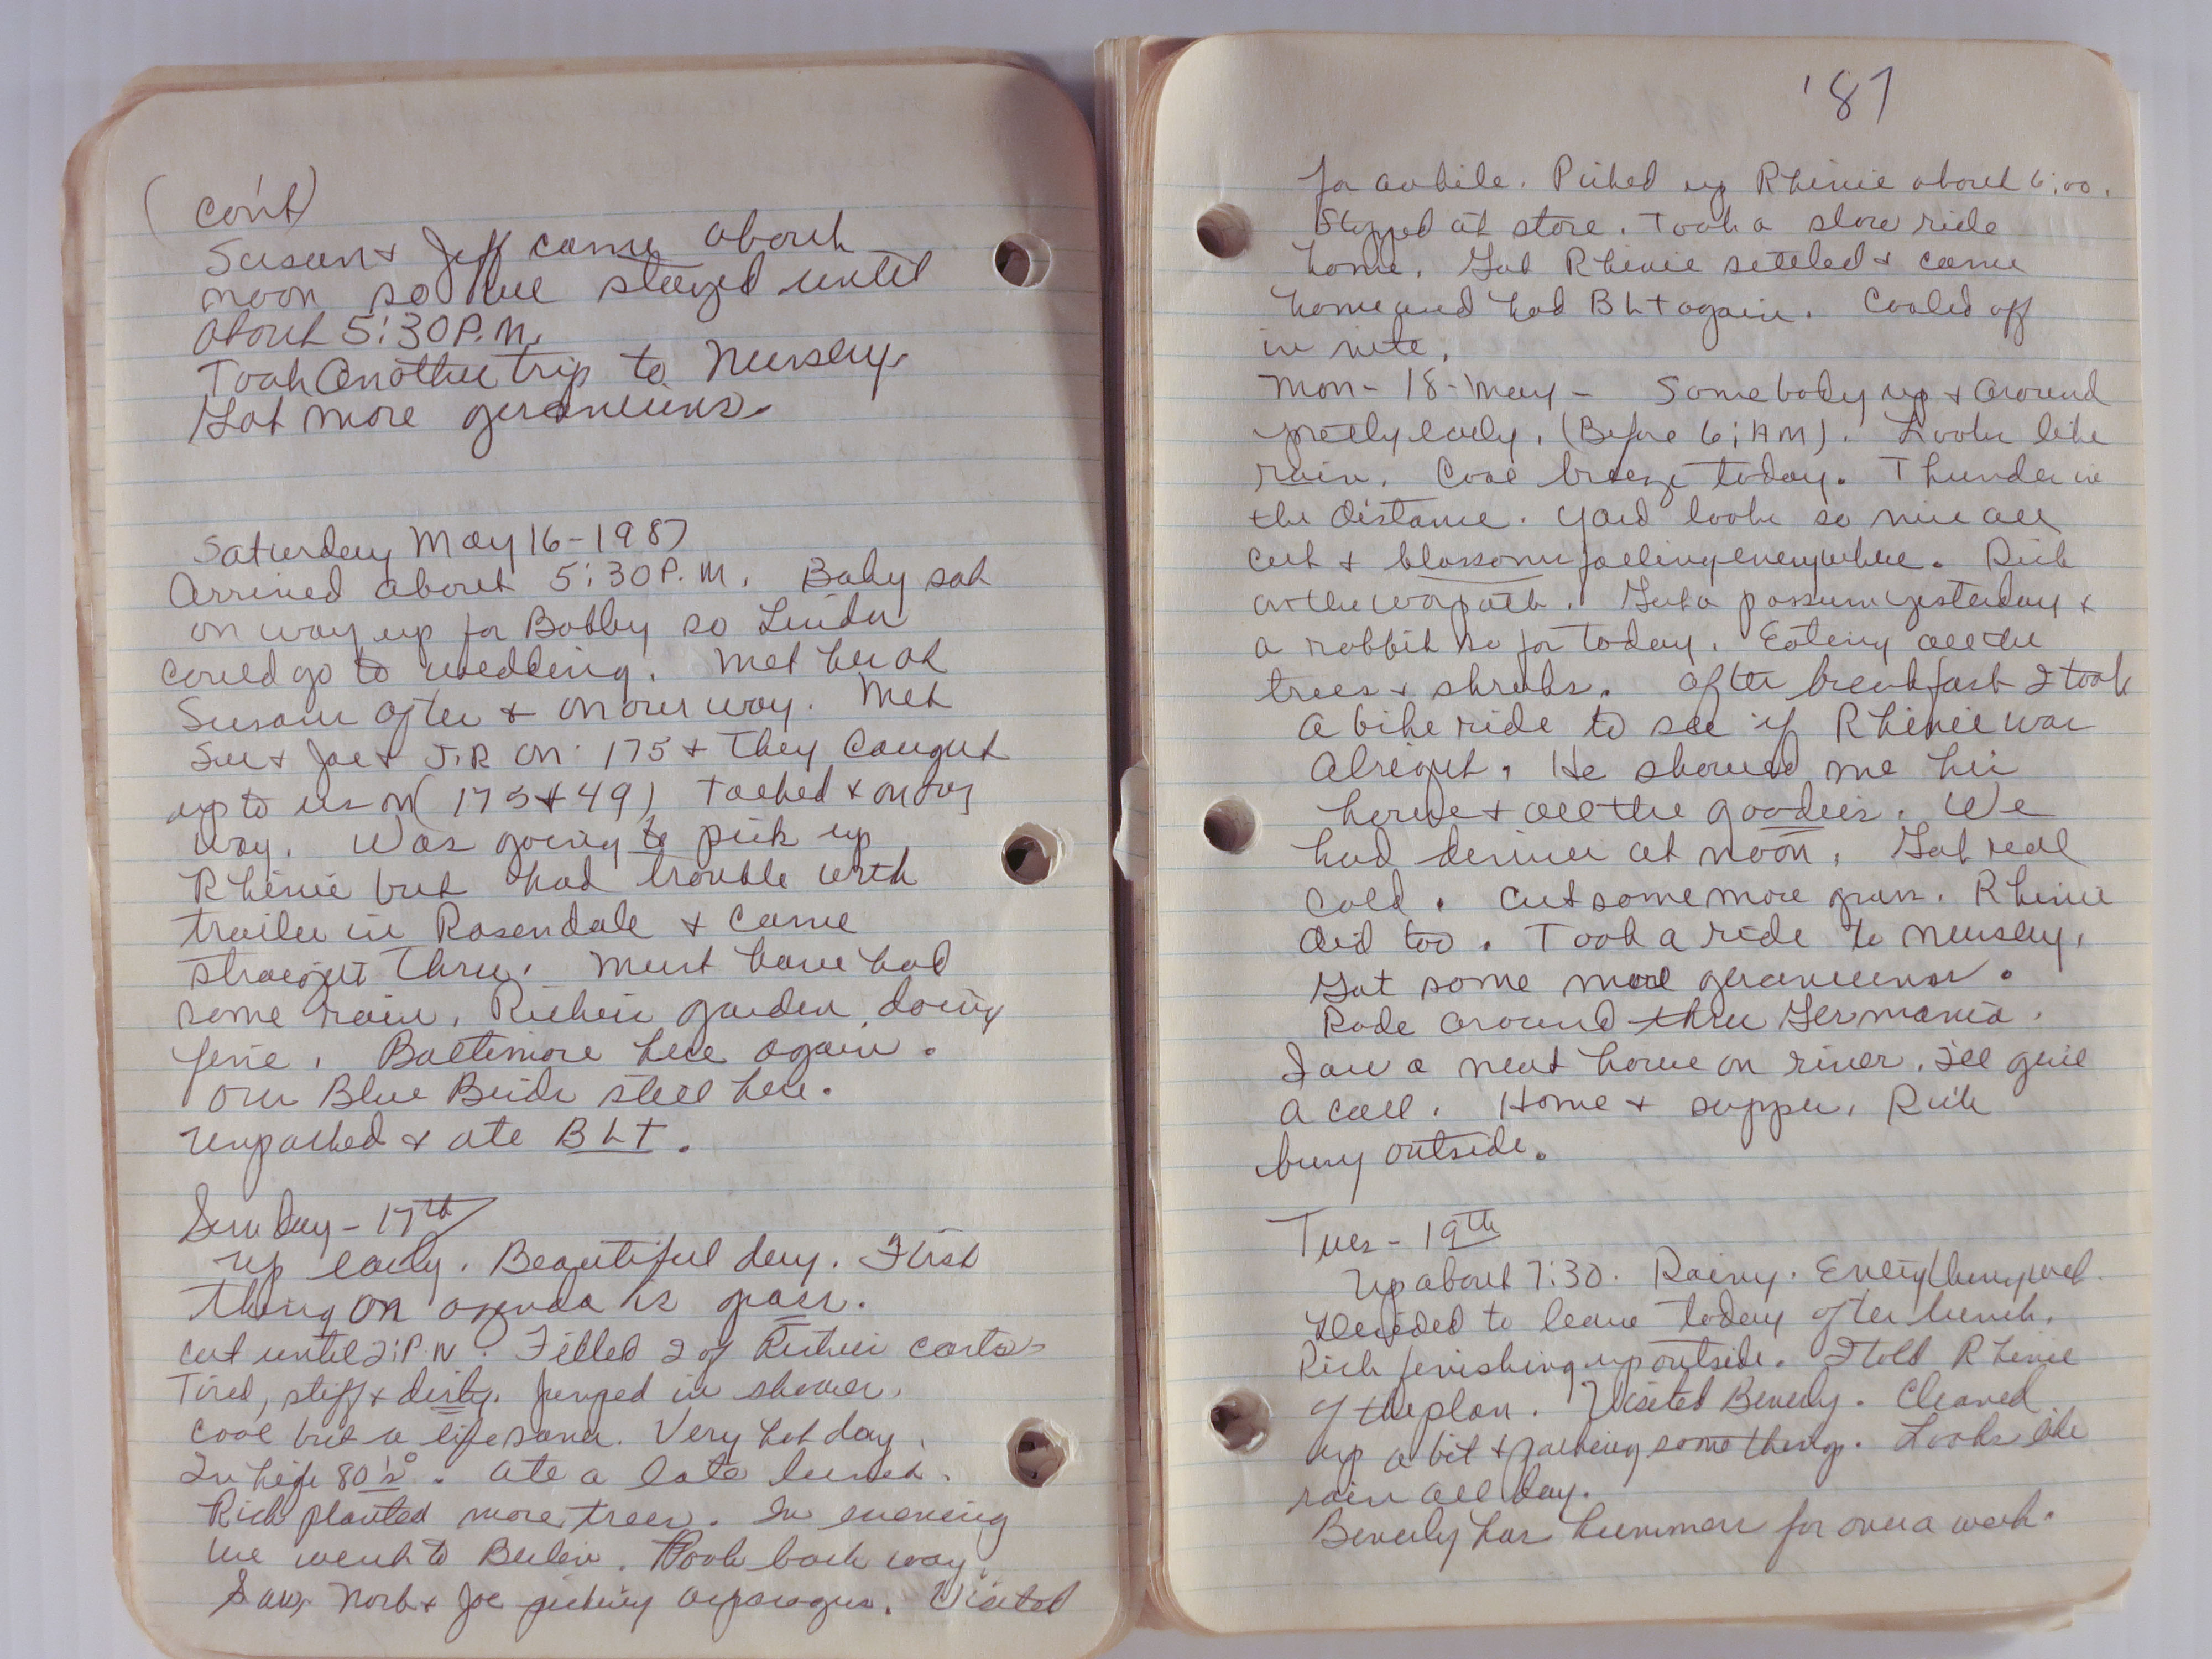 (con't)
Susan & Jeff came about
noon so we stayed until
about 5:30 P.M.
Took another trip to Nursery.
Got more geraniums.
Saturday May 16-1987
Arrived about 5:30 P.M. Baby sat
on way up for Bobby so Linda
could go to wedding. Met her at
Susans after & on our way. Met
Sue & Joe & J.R on 175 & They Caught
up to us on (175 & 49) Talked & on our
way. Was going to pick up
Rhinie but had trouble with
trailer in Rosendale & came
straight thru. Must have had
some rain. Richies garden doing
fine. Baltimore here again.
Our Blue Birds still here.
Unpacked & ate BLT.
Sunday - 17th
Up early. Beautiful day. First
thing on agenda is grass.
Cut until 2:P.M. Filled 2 of Richies carts
Tired, stiff & dirty. Jumped in shower.
Cool but a life saver. Very hot day.
In high 80's°. Ate a late lunch.
Rich planted more trees. In evening
we went to Berlin. Took back way.
Saw Norb & Joe picking asparagus. Visited
'87
for awhile. Picked up Rhinie about 6:00.
Stopped at store. Took a slow ride
home. Got Rhinie settled & came
home and had BLT again. Cooled off
in nite.
Mon - 18 - May - Somebody up & around
pretty early. (Before 6:AM). Looks like
rain. Cool breeze today. Thunder in
the distance. Yard looks so nice all
cut & blossoms falling everywhere. Rich
on the warpath. Got a possum yesterday &
a rabbit so far today. Eating all the
trees & shrubs. After breakfast I took
a bike ride to see if Rhinie was
Alright. He showed me his
house & all the goodies. We
had dinner at noon. Got real
Cold. Cut some more grass. Rhinie
did too. Took a ride to nursery.
Got some more geraniums.
Rode around thru Germania.
Saw a neat house on river. I'll give
a call. Home & supper. Rich
busy outside.
Tues - 19th
Up about 7:30. Rainy. Everything wet.
Decided to leave today after lunch.
Rich finishing up outside. I told Rhinie
of the plan. Visited Beverly. Cleaned
up a bit & packing some things. Looks like
rain all day.
Beverly has hummers for over a week.